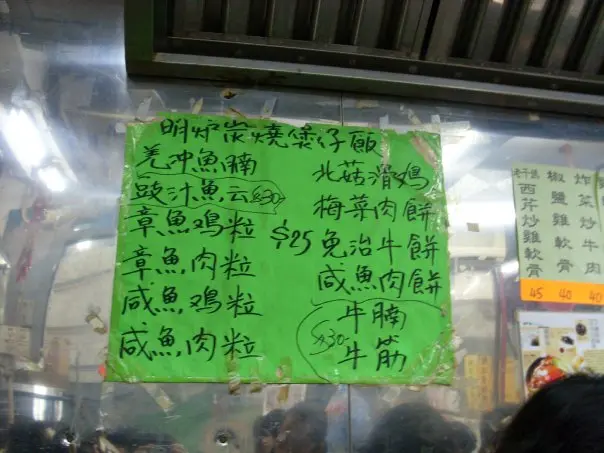 明炉炭燒煲仔飯
羗冲魚腩
豉汁魚云 $30
章魚鳮粒
章魚肉粒
咸魚鳮粒
咸魚肉粒
$25
北菇滑鳮
梅菜肉餅
免治牛餅
咸魚肉餅
牛腩
$30
牛筋
西芹炒雞軟骨
45
椒鹽雞軟骨
40
炸菜炒牛肉
40